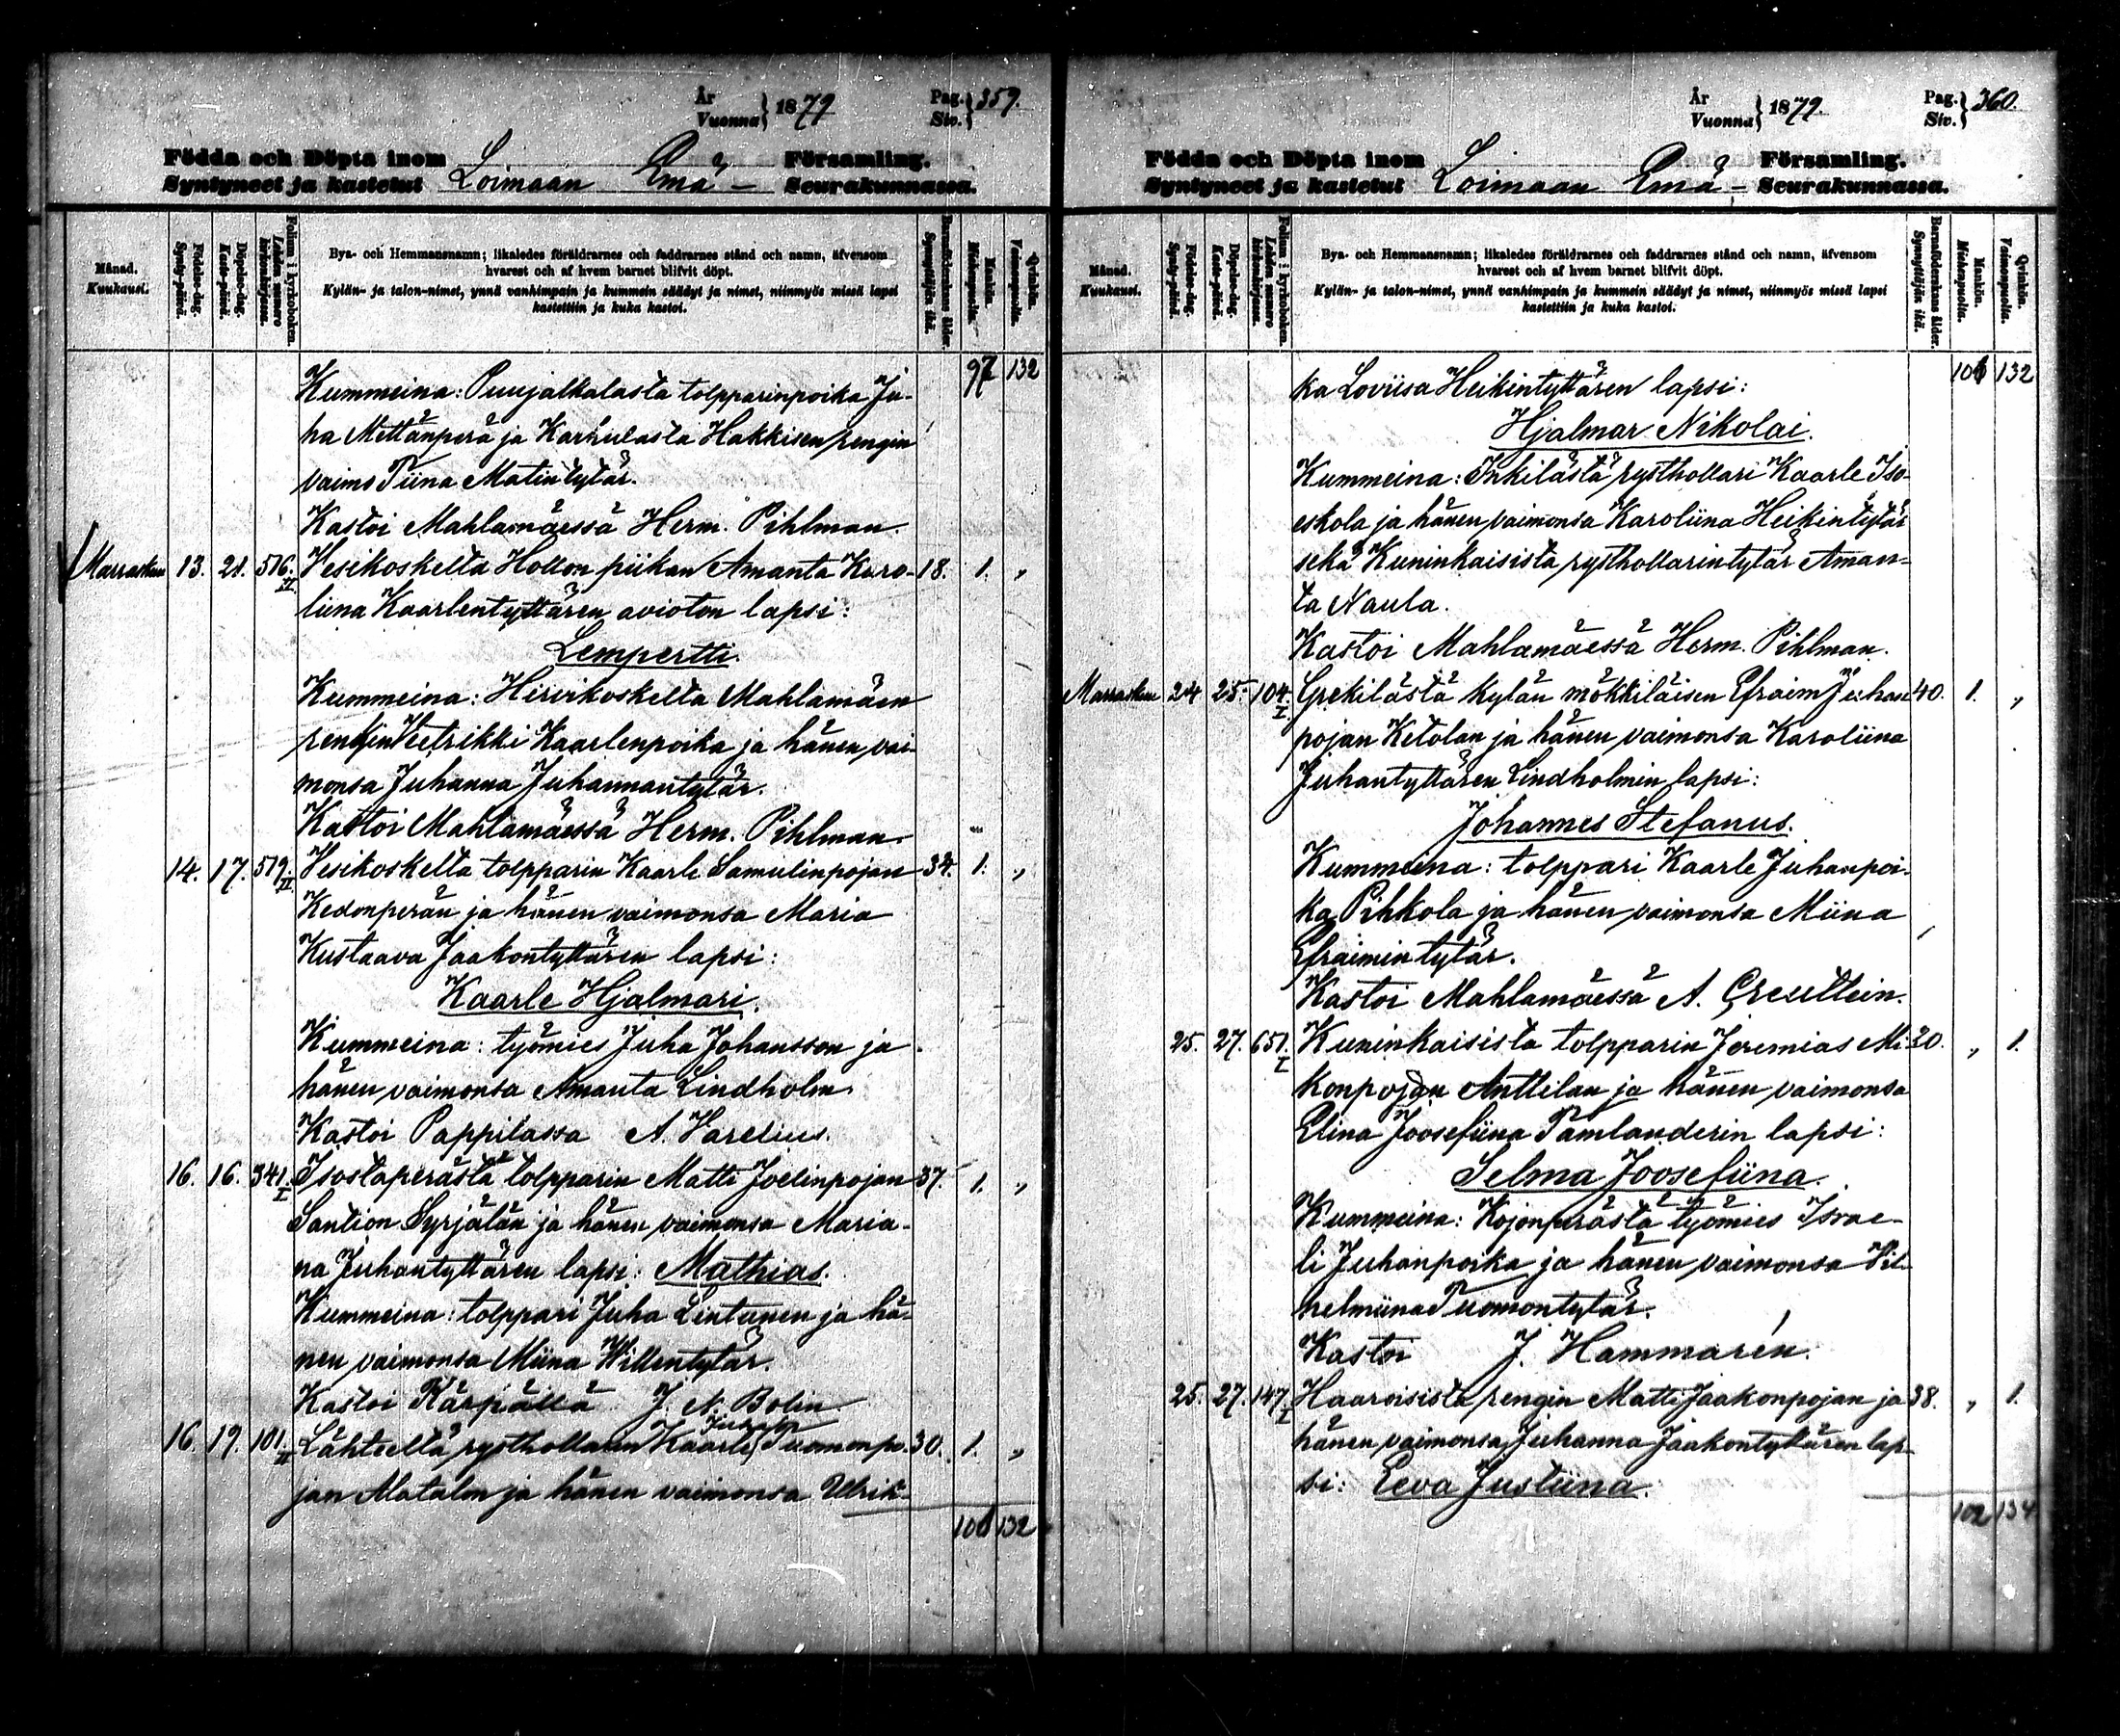 År
Vuonna } 1879
Pag.
Siv. } 359.
Födda och Döpta inom
Syntyneet ja kastetut Loimaan Emä- Församling.
Seurakunnassa.
Månad.
Kuukausi.
Födelse-dag.
Synty-päivä.
Döpelse-dag.
Kaste-päivä.
Folium i kyrkoboken.
Lehden numero kirkonkirjassa.
Bya- och Hemmansnamn; likaledes föräldrarnes och faddrarnes stånd och namn, äfvensom
hvarest och af hvem barnet blifvit döpt.
Kylän- ja talon-nimet, ynnä vanhimpain ja kummein säädyt ja nimet, niinmyös missä lapsi
kastettiin ja kuka kastoi.
Barnaföderskans ålder.
Synnyttäjän ikä.
Mankön.
Miehenpuolia.
Qvinkön.
Vaimonpuolia.
97 132
Kummeina: Puujalkalasta tolpparinpoika Ju-
ha Mettänperä ja Karhulasta Hakkisen rengin
vaimo Tiina Matintytär.
Kastoi Mahlamäessä Herm. Pihlman.
Marraskuu 13. 21. 516. II Vesikoskelta Hollon piikan Amanta Karo- 18. 1. "
liina Kaarlentyttären avioton lapsi:
Lempertti.
Kummeina: Hirvikoskelta Mahlamäen
rengin Veetrikki Kaarlenpoika ja hänen vai-
monsa Juhanna Juhannantytär.
Kastoi Mahlamäessä Herm. Pihlman.
14. 17. 519. II Vesikoskelta tolpparin Kaarle Samulinpojan 34. 1. "
Kedonperän ja hänen vaimonsa Maria
Kustaava Jaakontyttären lapsi:
Kaarle Hjalmari.
Kummeina: työmies Juha Johansson ja
hänen vaimonsa Amanta Lindholm
Kastoi Pappilassa A. Varelius.
16. 16. 341. I Isostaperästä tolpparin Matti Joelinpojan 37. 1. "
Santion Syrjälän ja hänen vaimonsa Maria-
na Juhantyttären lapsi: Mathias.
Kummeina: tolppari Juha Lintunen ja hä-
nen vaimonsa Miina Willentytär.
Kastoi Kärpällä J. N. Bolin
16. 19. 101. II Lähteeltä rysthollarin Kaarle Tuomonpo- 30. 1. "
jan Matalan ja hänen vaimonsa Ulrik-
101 132
År
Vuonna } 1879.
Pag.
Siv. } 360.
Födda och Döpta inom
Syntyneet ja kastetut Loimaan Emä- Församling.
Seurakunnassa.
Månad.
Kuukausi.
Födelse-dag.
Synty-päivä.
Döpelse-dag.
Kaste-päivä.
Folium i kyrkoboken.
Lehden numero kirkonkirjassa.
Bya- och Hemmansnamn; likaledes föräldrarnes och faddrarnes stånd och namn, äfvensom
hvarest och af hvem barnet blifvit döpt.
Kylän- ja talon-nimet, ynnä vanhimpain ja kummein säädyt ja nimet, niinmyös missä lapsi
kastettiin ja kuka kastoi.
Barnaföderskans ålder.
Synnyttäjän ikä.
Mankön.
Miehenpuolia.
Qvinkön.
Vaimonpuolia.
101 132
ka Loviisa Heikintyttären lapsi:
Hjalmar Nikolai.
Kummeina: Inkilästä rysthollari Kaarle Iso-
eskola ja hänen vaimonsa Karoliina Heikintytär
sekä Kuninkaisista rysthollarintytär Aman-
ta Naula.
Kastoi Mahlamäessä Herm. Pihlman.
Marraskuu 24 25. 104. I Grekilästä kylän mökkiläisen Efraim Juhan 40. 1. "
pojan Ketolan ja hänen vaimonsa Karoliina
Juhantyttären Lindholmin lapsi:
Johannes Stefanus.
Kummeina: tolppari Kaarle Juhanpoi-
ka Pihkola ja hänen vaimonsa Miina
Efraimintytär.
Kastoi Mahlamäessä A.
25. 27. 651. I Kuninkaisista tolpparin Jeremias Mi- 20. " 1.
konpojan Anttilan ja hänen vaimonsa
Elina Joosefiina Tamlanderin lapsi:
Selma Joosefiina.
Kummeina: Kojonperästä työmies Israe-
li Juhanpoika ja hänen vaimonsa Vil-
helmiina Tuomontytär.
Kastoi J. Hammarén.
25. 27. 147. I Haaroisista rengin Matti Jaakonpojan ja 38. " 1.
hänen vaimonsa Juhanna Jaakontyttären lap-
si: Eeva Justiina.
102 134